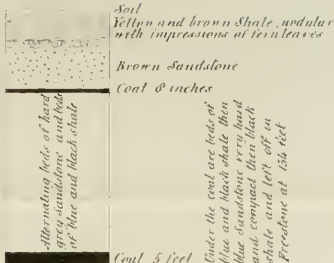 Soil
Yellow and brown Shale, nodular
with impressions of fern leaves
Brown Sandstone
Coal 8 inches
Alternating beds of hard
grey sandstone and beds
of blue and black shale
Under the coal are beds of
blue and black shale then
blue sandstone very hard
and compact then black
shale and left off in
Freestone at 134 feet
Coal 5 feet